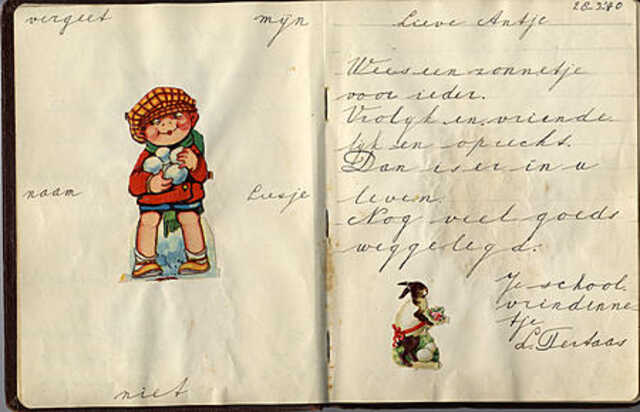 vergeet mijn
naam Liesje
niet
28.3.40
Lieve Antje
Wees een zonnetje
voor ieder.
Vrolyk en vriende
lyk en oprecht.
Dan is er in u
leven.
Nog veel goeds
weggelegd.
Je school
vrindinne
tje
L. Tertaas